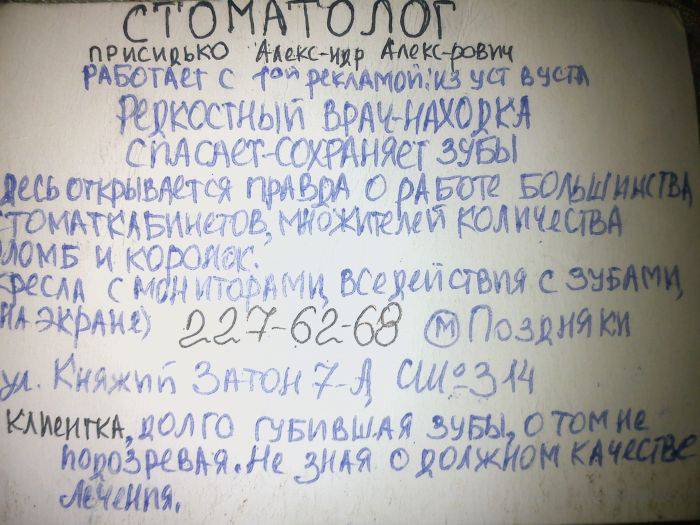 СТОМАТОЛОГ
ПРИСИДЬКО АЛЕКС-НДР АЛЕКС-РОВИЧ
РАБОТАЕТ С 1ОЙ РЕКЛАМОЙ: ИЗ УСТ В УСТА
РЕДКОСТНЫЙ ВРАЧ-НАХОДКА
СПАСАЕТ-СОХРАНЯЕТ ЗУБЫ
ДЕСЬ ОТКРЫВАЕТСЯ ПРАВДА О РАБОТЕ БОЛЬШИНСТВА
СТОМАТКАБИНЕТОВ, МНОЖИТЕЛЕЙ КОЛИЧЕСТВА
ЛОМБ И КОРОНОК.
КРЕСЛА С МОНИТОРАМИ, ВСЕ ДЕЙСТВИЯ С ЗУБАМИ,
НА ЭКРАНЕ) 227-62-68 М ПОЗДНЯКИ
УЛ. КНЯЖИЙ ЗАТОН 7-А, СШ№314
КЛИЕНТКА, ДОЛГО ГУБИВШАЯ ЗУБЫ, О ТОМ НЕ
ПОДОЗРЕВАЯ. НЕ ЗНАЯ О ДОЛЖНОМ КАЧЕСТВЕ
ЛЕЧЕНИЯ.